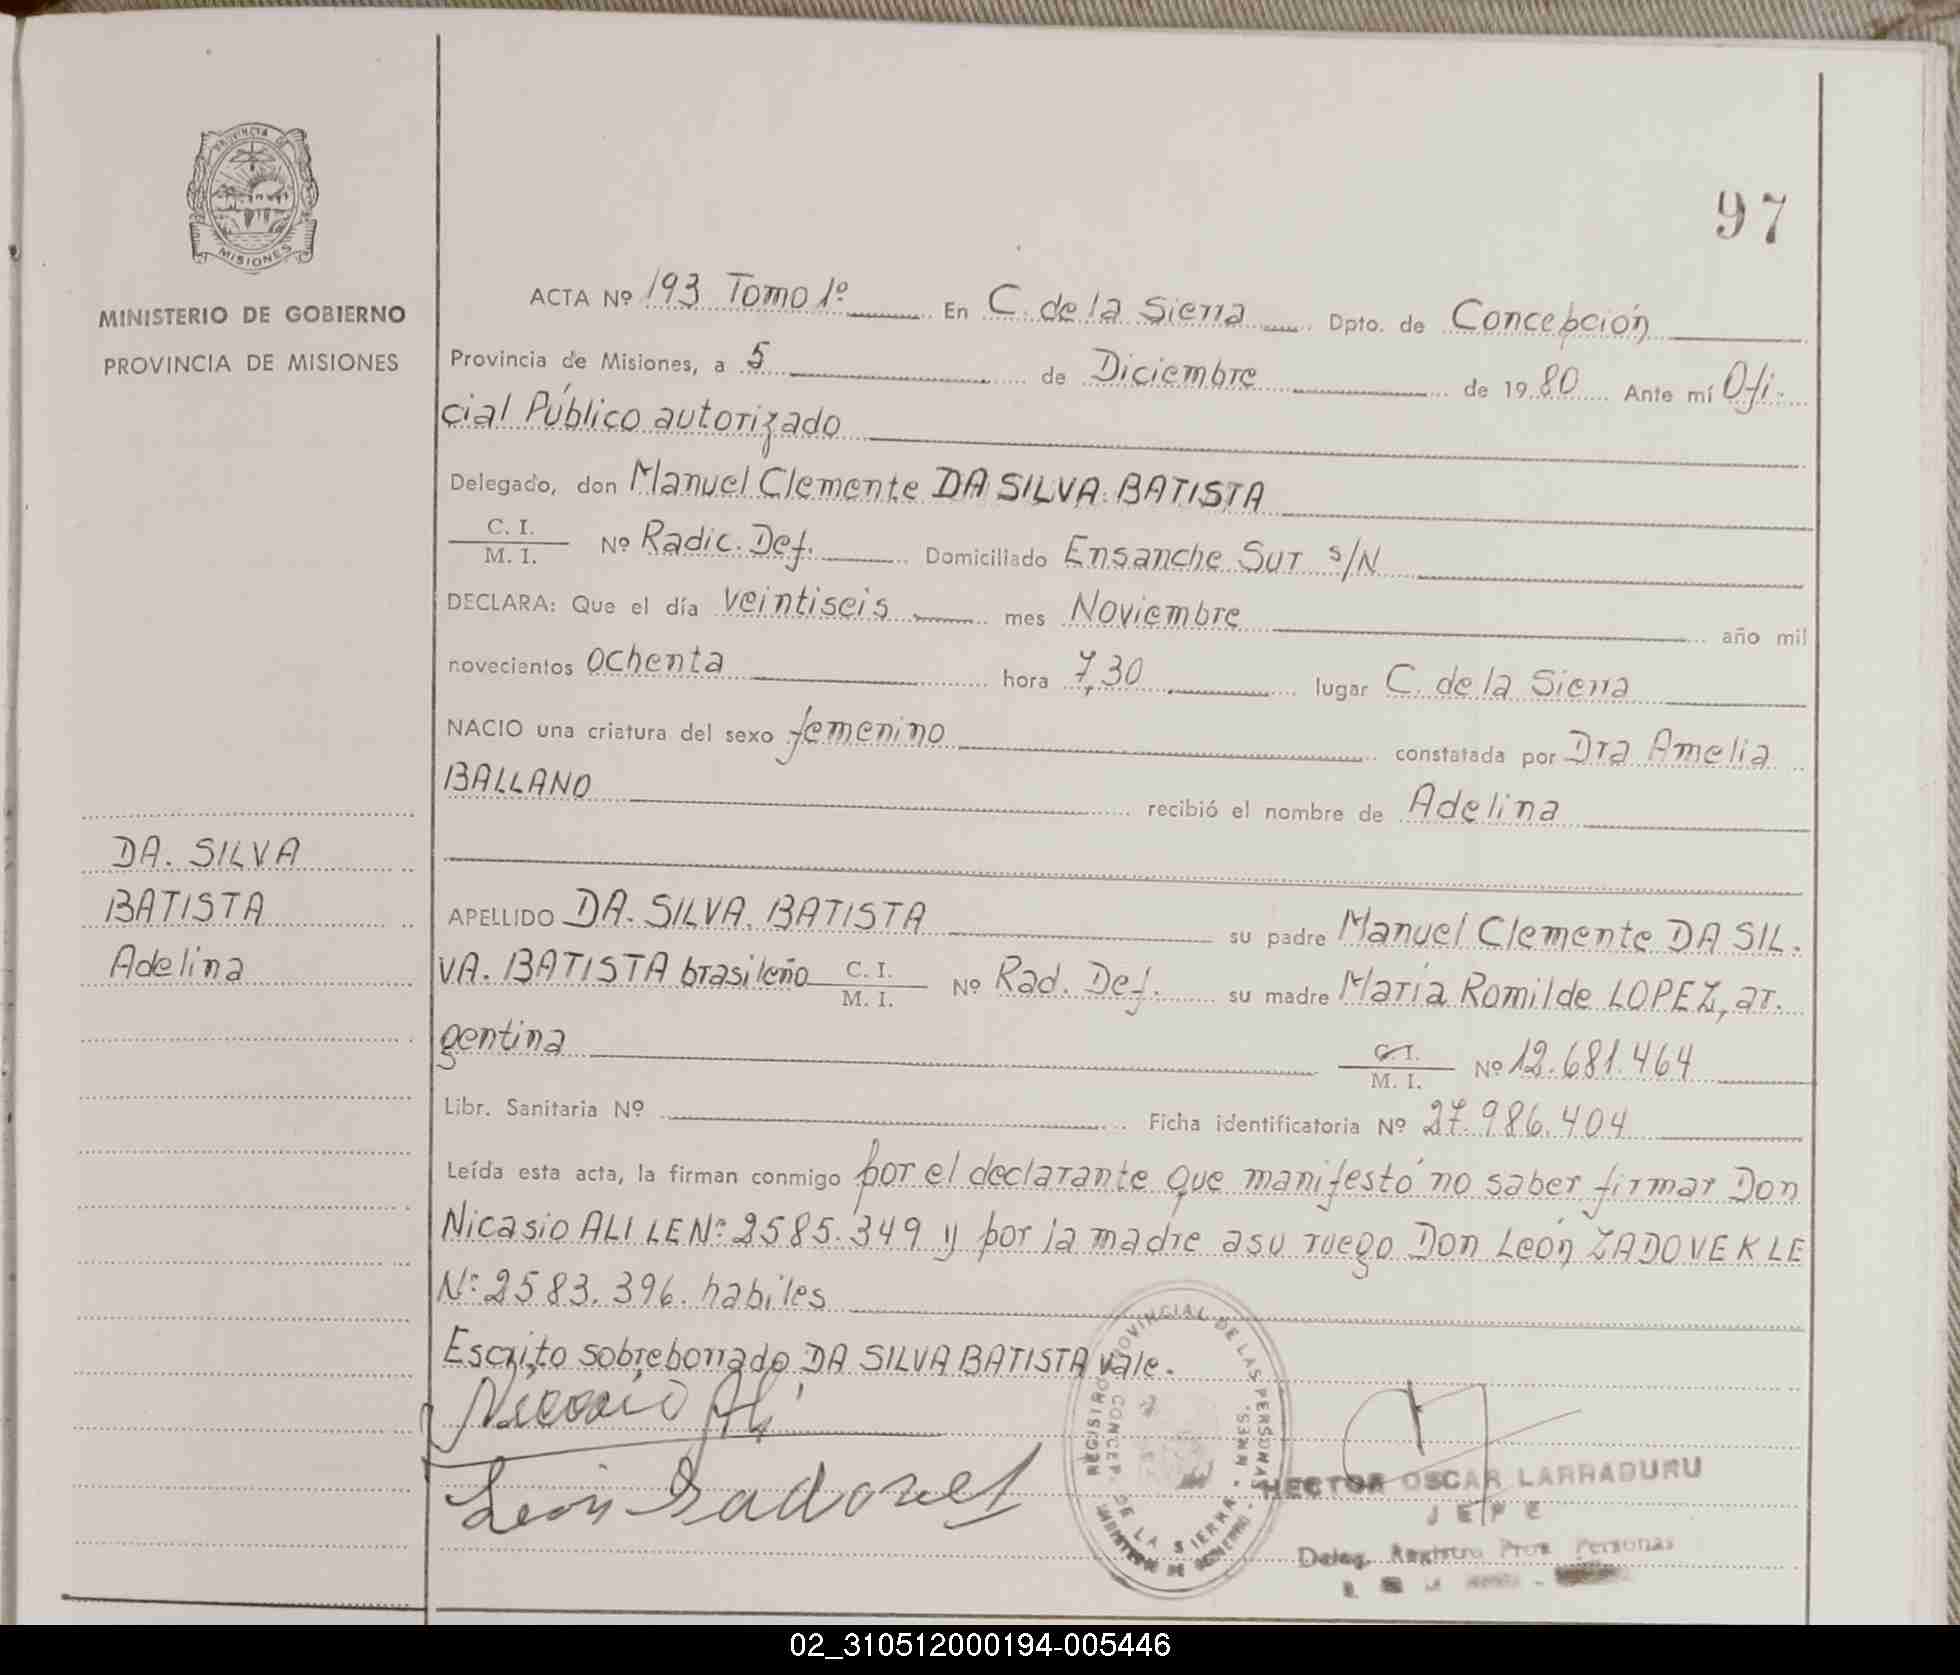 PROVINCIA DE
MISIONES
MINISTERIO DE GOBIERNO
PROVINCIA DE MISIONES
DA. SILVA
BATISTA
Adelina
97
ACTA Nº 193 Tomo 1º En C. de la Sierra Dpto. de Concepción
Provincia de Misiones, a 5 de Diciembre de 1980 Ante mí Ofi-
cial Público autorizado
Delegado, don Manuel Clemente DA SILVA BATISTA
C. I.
M. I. Nº Radic. Def. Domiciliado Ensanche Sur s/N
DECLARA: Que el día veintiseis mes Noviembre año mil
novecientos ochenta hora 7,30 lugar C. de la Sierra
NACIO una criatura del sexo femenino constatada por Dra Amelia
BALLANO recibió el nombre de Adelina
APELLIDO DA. SILVA. BATISTA su padre Manuel Clemente DA SIL.
VA. BATISTA brasileño C. I. M. I. Nº Rad. Def. su madre María Romilde LOPEZ, ar.
gentina C. I. M. I. Nº 12.681.464
Libr. Sanitaria Nº Ficha identificatoria Nº 27.986.404
Leída esta acta, la firman conmigo por el declarante que manifestó no saber firmar Don
Nicasio ALI LE Nº 2585.349 y por la madre a su ruego Don León ZADOVEK LE
Nº 2583.396. habiles
Escrito sobreborrado DA SILVA BATISTA vale.
Nicasio Ali
León Zadovek
REGISTRO PROVINCIAL DE LAS PERSONAS
CONCEP. DE LA SIERRA - MNES.
MINISTERIO DE GOBIERNO
HECTOR OSCAR LARRABURU
JEFE
Deleg. Registro Prov. Personas
02_310512000194-005446